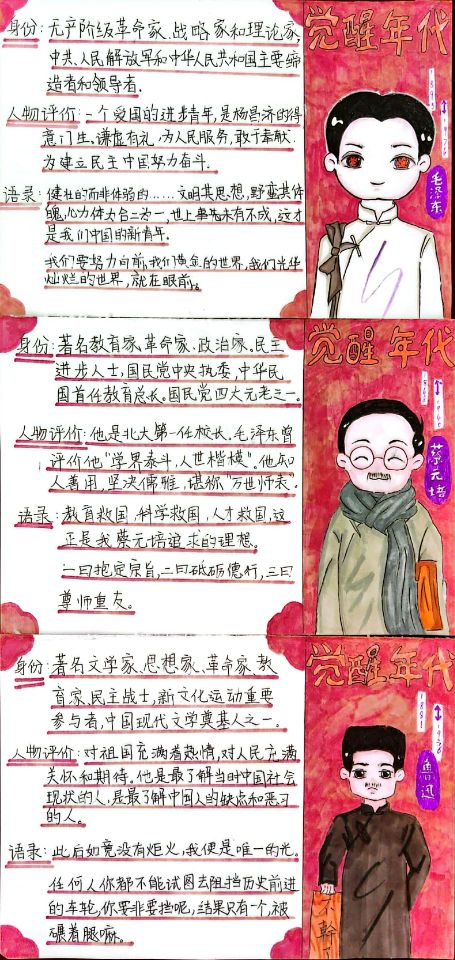 身份：无产阶级革命家、战略家和理论家，
中共、人民解放军和中华人民共和国主要缔
造者和领导者．
人物评价：一个爱国的进步青年，是杨昌济的得
意门生。谦虚有礼，为人民服务，敢于奉献．
为建立民主中国努力奋斗．
语录：健壮的而非体弱的……文明其思想，野蛮其体
魄，心力体力合二为一，世上事先未有不成，这才
是我们中国的新青年．
我们要努力向前，我们黄金的世界，我们光华
灿烂的世界，就在眼前。
觉醒年代
1893
1976
毛泽东
身份：著名教育家、革命家、政治家。民主
进步人士，国民党中央执委，中华民
国首任教育总长。国民党四大元老之一。
人物评价：他是北大第一任校长．毛泽东曾
评价他“学界泰斗，人世楷模”。他知
人善用，坚决儒雅，堪称“万世师表”。
语录：教育救国，科学救国，人才救国，这
正是我蔡元培追求的理想。
一曰抱定宗旨，二曰砥砺德行，三曰
尊师重友。
觉醒年代
1868
1940
蔡元培
身份：著名文学家、思想家、革命家、教
育家、民主战士，新文化运动重要
参与者，中国现代文学奠基人之一．
人物评价：对祖国充满着热情，对人民充满
关怀和期待。他是最了解当时中国社会
现状的人，是最了解中国人的缺点和恶习
的人。
语录：此后如竟没有炬火，我便是唯一的光。
任何人你都不能试图去阻挡历史前进
的车轮，你要非要挡呢，结果只有一个，被
碾着腿嘛。
觉醒年代
1881
1936
鲁迅
不幹了